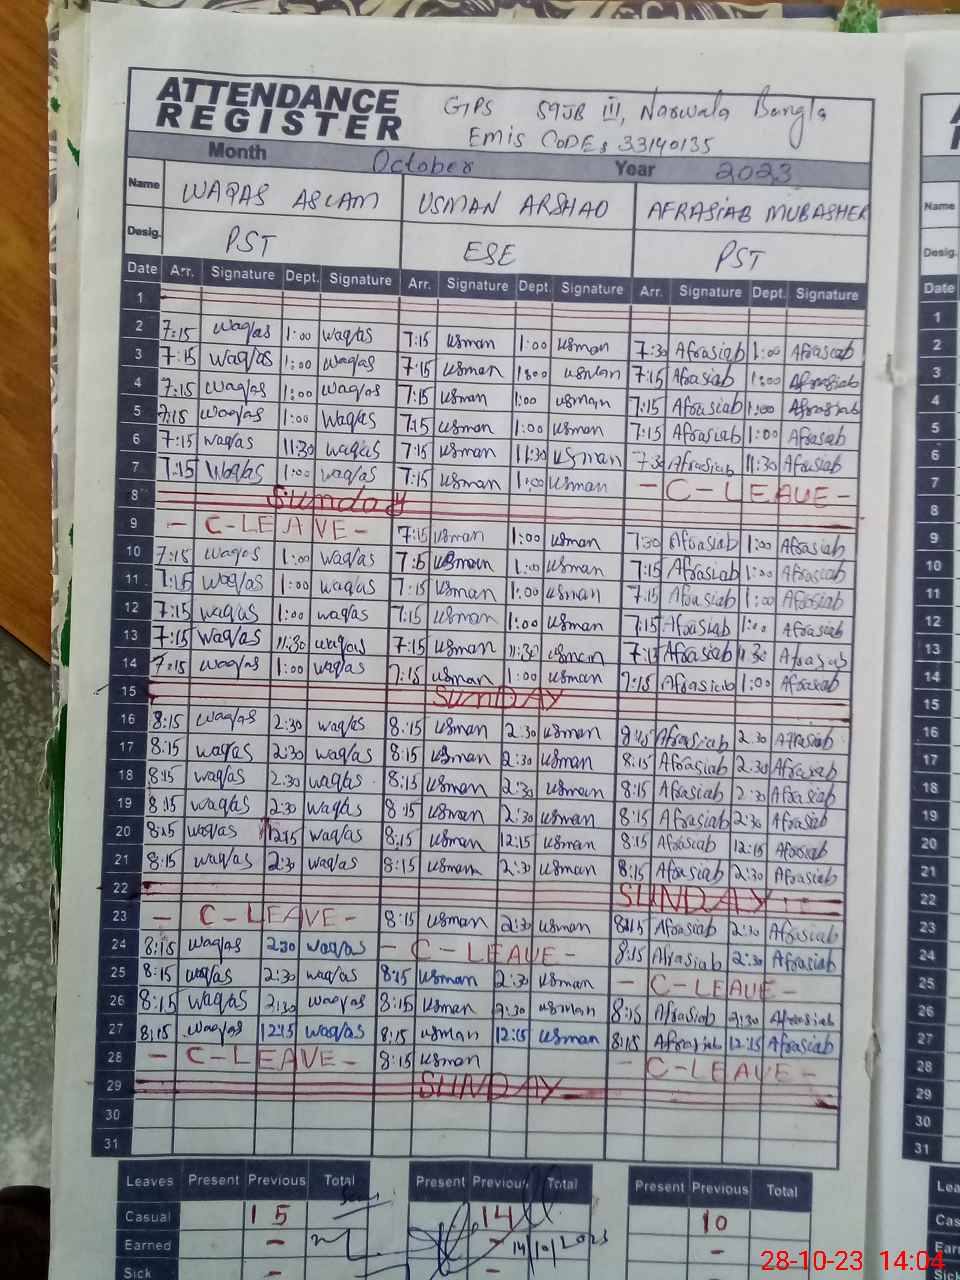 ATTENDANCE REGISTER
GPS 59JB III, Narwala Bangla
Emis CODE: 33140135
Month October Year 2023
Name WAQAS ASLAM USMAN ARSHAD AFRASIAB MUBASHER
Desig. PST ESE PST
Date Arr. Signature Dept. Signature Arr. Signature Dept. Signature Arr. Signature Dept. Signature
1
2 7:15 waqas 1:00 waqas 7:15 usman 1:00 usman 7:30 Afrasiab 1:00 Afrasiab
3 7:15 waqas 1:00 waqas 7:15 usman 1:00 usman 7:15 Afrasiab 1:00 Afrasiab
4 7:15 waqas 1:00 waqas 7:15 usman 1:00 usman 7:15 Afrasiab 1:00 Afrasiab
5 7:15 waqas 1:00 waqas 7:15 usman 1:00 usman 7:15 Afrasiab 1:00 Afrasiab
6 7:15 waqas 11:30 waqas 7:15 usman 11:30 usman 7:30 Afrasiab 11:30 Afrasiab
7 7:15 waqas 1:00 waqas 7:15 usman 1:00 usman - C - LEAVE -
8 Sunday
9 - C-LEAVE - 7:15 usman 1:00 usman 7:30 Afrasiab 1:00 Afrasiab
10 7:15 waqas 1:00 waqas 7:15 usman 1:00 usman 7:15 Afrasiab 1:00 Afrasiab
11 7:15 waqas 1:00 waqas 7:15 usman 1:00 usman 7:15 Afrasiab 1:00 Afrasiab
12 7:15 waqas 1:00 waqas 7:15 usman 1:00 usman 7:15 Afrasiab 1:00 Afrasiab
13 7:15 waqas 11:30 waqas 7:15 usman 11:30 usman 7:15 Afrasiab 11:30 Afrasiab
14 7:15 waqas 1:00 waqas 7:15 usman 1:00 usman 7:15 Afrasiab 1:00 Afrasiab
15 SUNDAY
16 8:15 waqas 2:30 waqas 8:15 usman 2:30 usman 8:15 Afrasiab 2:30 Afrasiab
17 8:15 waqas 2:30 waqas 8:15 usman 2:30 usman 8:15 Afrasiab 2:30 Afrasiab
18 8:15 waqas 2:30 waqas 8:15 usman 2:30 usman 8:15 Afrasiab 2:30 Afrasiab
19 8:15 waqas 2:30 waqas 8:15 usman 2:30 usman 8:15 Afrasiab 2:30 Afrasiab
20 8:15 waqas 12:15 waqas 8:15 usman 12:15 usman 8:15 Afrasiab 12:15 Afrasiab
21 8:15 waqas 2:30 waqas 8:15 usman 2:30 usman 8:15 Afrasiab 2:30 Afrasiab
22 SUNDAY
23 - C - LEAVE - 8:15 usman 2:30 usman 8:15 Afrasiab 2:30 Afrasiab
24 8:15 waqas 2:30 waqas - C - LEAVE - 8:15 Afrasiab 2:30 Afrasiab
25 8:15 waqas 2:30 waqas 8:15 usman 2:30 usman - C - LEAVE -
26 8:15 waqas 2:30 waqas 8:15 usman 2:30 usman 8:15 Afrasiab 2:30 Afrasiab
27 8:15 waqas 12:15 waqas 8:15 usman 12:15 usman 8:15 Afrasiab 12:15 Afrasiab
28 - C - LEAVE - 8:15 usman - C - LEAVE -
29 SUNDAY
30
31
Leaves Present Previous Total Present Previous Total Present Previous Total
Casual 15 14 10
Earned - - -
14/10/2023
Sick - -
Name
Desig.
Date
1
2
3
4
5
6
7
8
9
10
11
12
13
14
15
16
17
18
19
20
21
22
23
24
25
26
27
28
29
30
31
28-10-23 14:04